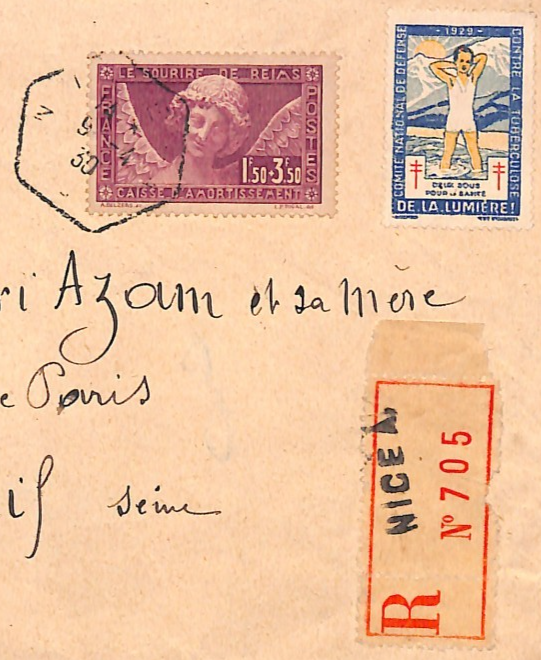 LE SOURIRE DE REIMS
FRANCE
POSTES
1F.50+3F.50
CAISSE D'AMORTISSEMENT
9-4
30
-1929-
COMITÉ NATIONAL DE DÉFENSE
CONTRE LA TUBERCULOSE
DEUX SOUS
POUR LA SANTÉ
DE LA LUMIÈRE!
ri Azam et sa mère
e Paris
if Seine
NICE
R
Nº 705